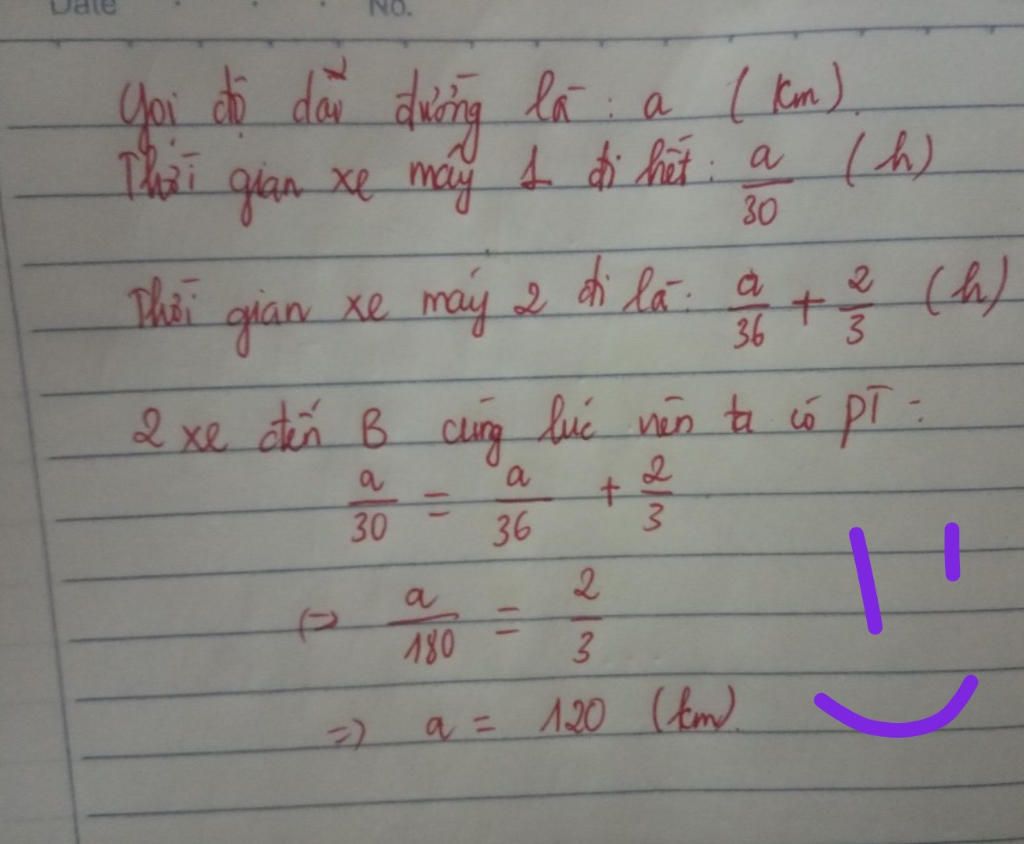 Date No.
Gọi độ dài đường là: a (km).
Thời gian xe máy 1 đi hết: a/30 (h)
Thời gian xe máy 2 đi là: a/36 + 2/3 (h)
2 xe đến B cùng lúc nên ta có PT:
a/30 = a/36 + 2/3
(=> a/180 = 2/3
=> a = 120 (km).